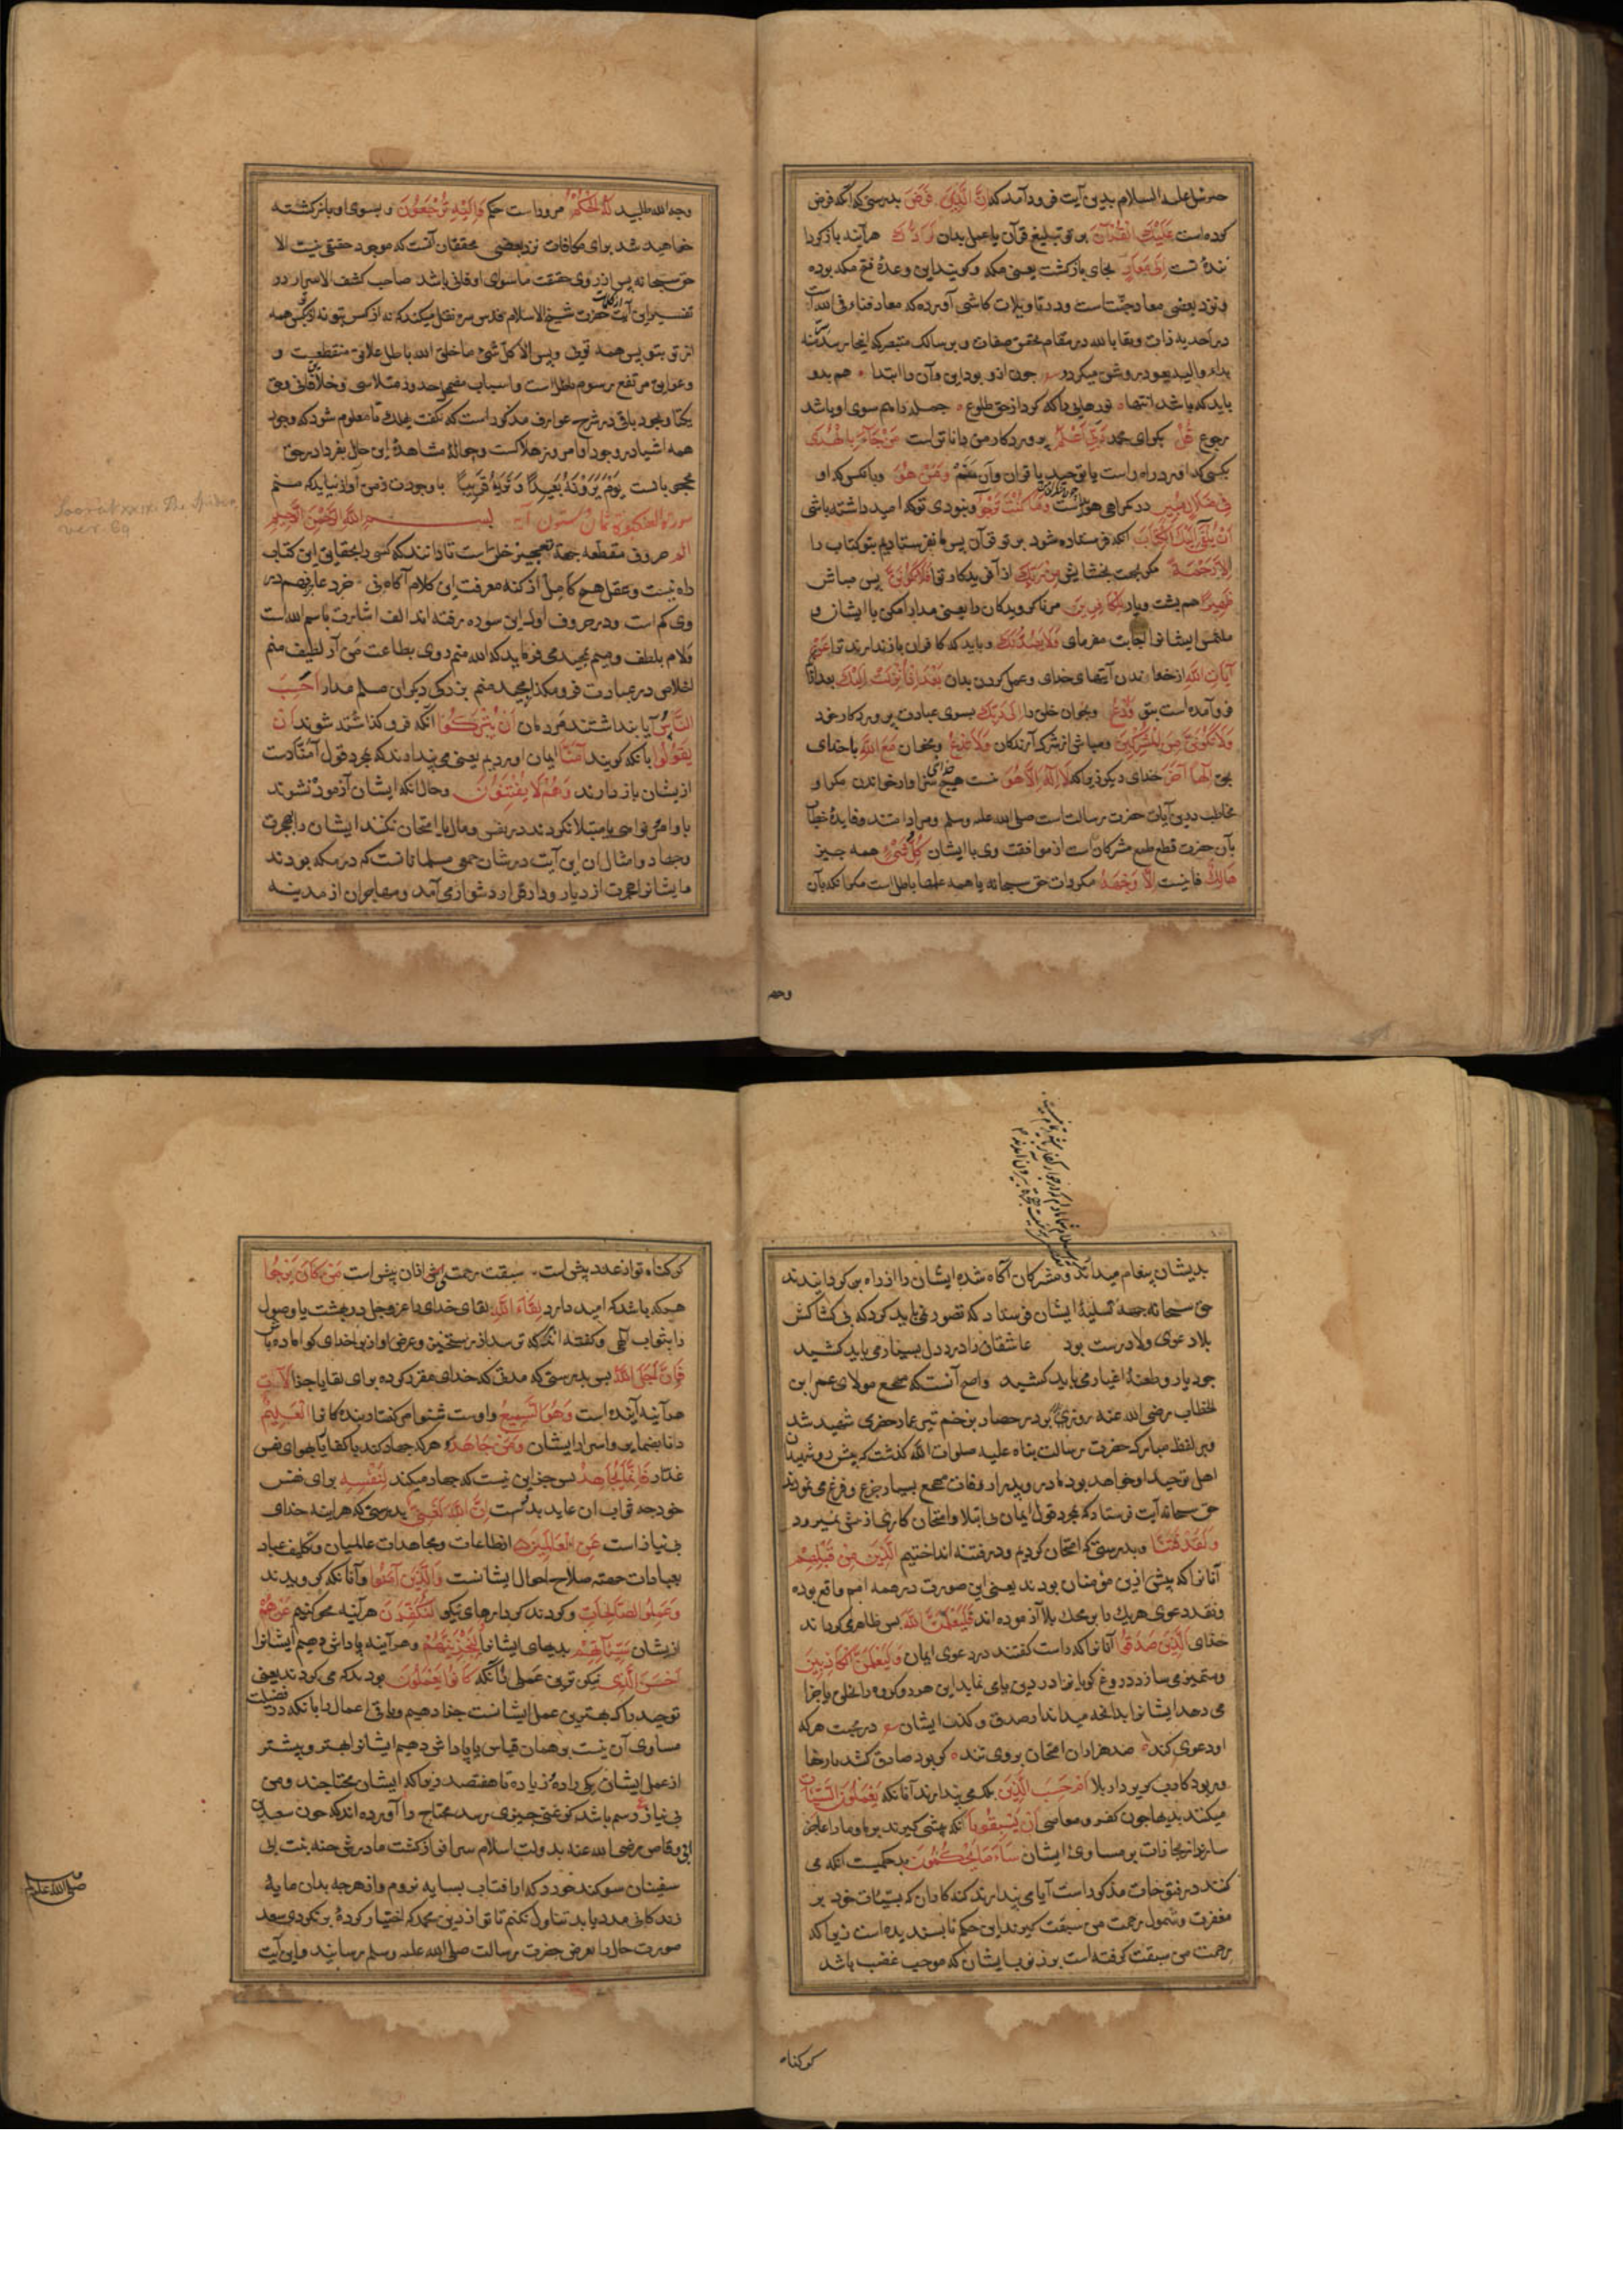 جبرئیل علیه السلام بدین آیت فرود آمد که اِنَّ الَّذِی فَرَضَ بدرستی که آنکه فرض
کرده است عَلَیْكَ الْقُرْآنَ بر تو تبلیغ قرآن یا عمل بدان لَرَادُّكَ هرآینه بازگرداننده
تست اِلَی مَعَادٍ بجای بازگشت یعنی مکه و گویند این وعدهٔ فتح مکه بوده
و نزد بعضی معاد جنتست و در تاویلات کاشی آورده که معاد فناء فی الله است
در احدیه ذات و بقا بالله در مقام تحقق صفات و بر سالک متبصر که اینجا رسد
باید که باشد انتها نور هایی را که کرد از حق طلوع جمله را هم سوی او باشد
رجوع قُلْ بگو ای محمد رَبِّی اَعْلَمُ پروردگار من داناتر است مَنْ جَآءَ بِالْهُدَی
بکسی که آورد راه راست یا توحید یا قرآن وَمَنْ هُوَ و بانکس که او
فِی ضَلَالٍ مُبِینٍ در گمراهی هویداست وَمَا كُنْتَ تَرْجُو و نبودی تو که امید داشته باشی
اَنْ یُلْقَی اِلَیْكَ الْكِتَابُ آنکه فرستاده شود بر تو قرآن پس ما بفرستادیم بتو کتاب را
اِلَّا رَحْمَةً مگر بجهت بخشایش مِنْ رَبِّكَ از آفریدکار تو فَلَا تَكُونَنَّ پس مباش
ظَهِیرًا هم پشت و یار لِلْكَافِرِینَ مر ناکرویدکان را یعنی مدارا مکن با ایشان و
ملتمس ایشانرا اجابت مفرمای وَلَا یَصُدُّنَّكَ و باید که کافران بازندارند ترا عَنْ
آیَاتِ اللّٰهِ از خواندن آیتهای خدای و عمل کردن بدان بَعْدَ اِذْ اُنْزِلَتْ اِلَیْكَ بعد از آنکه
فرود آمده است بتو وَادْعُ و بخوان خلق را اِلَی رَبِّكَ بسوی عبادت پروردکار خود
وَلَا تَكُونَنَّ مِنَ الْمُشْرِكِینَ و مباش از شرک آرندکان وَلَا تَدْعُ و مخوان مَعَ اللّٰهِ با خدای
بحق اِلٰهًا آخَرَ خدای دیکر زیرا که لَا اِلٰهَ اِلَّا هُوَ نیست هیچ خدای سزاوار خواندن مگر او
مخاطب درین آیات حضرت رسالتست صلی الله علیه وسلم و مراد امتند و فایدهٔ خطاب
بآن حضرت قطع طمع مشرکان است از موافقت وی با ایشان كُلُّ شَیْءٍ همه چیز
هَالِكٌ فانیست اِلَّا وَجْهَهُ مکر ذات حق سبحانه یا همه عملها باطل است مکر آنکه بآن
وجه
وجه الله طلبید لَهُ الْحُكْمُ مر وراست حکم وَاِلَیْهِ تُرْجَعُونَ و بسوی او بازکشته
خواهید شد برای مکافات نزد بعضی محققان آنست که موجود حقیقی نیست الا
حق سبحانه پس از روی حقیقت ماسوای او فانی باشد صاحب کشف الاسرار در
تفسیر این آیت از کلمات حضرت شیخ الاسلام قدس سره نقل میکند که نه از کس بتو نه از تو بکس همه
از تو بتو پس همه تویی و بس الا کل شیء ما خلا الله باطل علایق منقطعست و
یکتا و بخود باقی در شرح عوارف مذکور است که نگفت یهلك تا معلوم شود که وجود
همه اشیا در وجود او امروز هالکست و حوالهٔ مشاهدهٔ این حال بفردا در حق
محجوبانست یَوْمَ یَرَوْنَهُ بَعِیدًا وَنَرَاهُ قَرِیبًا با وجودت ز من آواز نیاید که منم
سورة العنكبوت بسم الله الرحمن الرحیم
الم حروف مقطعه جهة تعجیز خلق است تا دانند که کسی را بحقایق این کتاب
راه نیست و عقل هیچ کامل از کنه معرفت این کلام آگاه نی خرد عاجز و فهم در
وی کم است و در حروف اول این سوره گفته اند الف اشارت باسم الله است
و لام بلطف و میم بمجید می فرماید که الله منم روی بطاعت من آر لطیف منم
اخلاص در عبادت فرو مگذار مجید منم بزرکی دیکران مسلم مدار اَحَسِبَ
النَّاسُ آیا پنداشتند مردمان اَنْ یُتْرَكُوا آنکه فروگذاشته شوند اَنْ
یَقُولُوا بآنکه گویند آمَنَّا ایمان آوردیم یعنی می پندارند که بمجرد قول آمنا دست
از ایشان باز دارند وَهُمْ لَا یُفْتَنُونَ و حال آنکه ایشان آزموده نشوند
باوامر و نواهی یا مبتلا نکردند در نفس و مال یا امتحان نکنند ایشان را بهجرت
و جهاد و امثال آن این آیت در شان جمعی مسلمانانست که در مکه بودند
و ایشانرا هجرت از دیار و دار قرار دشوار می آمد و مهاجران از مدینه
Soorat xxix The Spider
ver. 69
بدیشان پیغام میدادند و مشرکان آگاه شده ایشان را از راه بر می کردانیدند
حق سبحانه جهة تسلیهٔ ایشان فرستاد که تصور نمی باید کرد که بی کشاکش
بلا دعوی ولا درست بود عاشقان را درد دل بسیار می باید کشید
جور یار و طعنهٔ اغیار می باید کشید و اصح آنست که مهجع مولای عمر ابن
الخطاب رضی الله عنه روز بدر در حصار بزخم تیر عمار حضری شهید شد
و بر لفظ مبارک حضرت رسالت پناه علیه صلوات الله گذشت که پیش رو شهیدان
اهل توحید او خواهد بود مادر و پدر از وفات مهجع بسیار جزع و فزع می نمودند
حق سبحانه آیت فرستاد که بمجرد قول ایمان بی ابتلا و امتحان کاری از پیش نمیرود
وَلَقَدْ فَتَنَّا و بدرستی که امتحان کردیم و در فتنه انداختیم الَّذِینَ مِنْ قَبْلِهِمْ
آنانرا که پیش ازین مؤمنان بودند یعنی این صورت در همه امم واقع بوده
و نقد دعوی هریک را بر محک بلا آزموده اند فَلَیَعْلَمَنَّ اللّٰهُ پس ظاهر کرداند
خدای الَّذِینَ صَدَقُوا آنانرا که راست گفتند در دعوی ایمان وَلَیَعْلَمَنَّ الْكَاذِبِینَ
می دهد ایشانرا بدانچه میداند از صدق و کذب ایشان در محبت هرکه
او دعوی کند صد هزاران امتحان بروی تند گر بود صادق کشد بارها
ور بود کاذب گریزد از بلا اَمْ حَسِبَ الَّذِینَ بلکه می پندارند آنانکه یَعْمَلُونَ السَّیِّئَاتِ
میکنند بدیها چون کفر و معاصی اَنْ یَسْبِقُونَا آنکه پیشی گیرند بر ما و ما را عاجز
سازند از مجازات بر مساوی ایشان سَآءَ مَا یَحْكُمُونَ بد حکمیست آنکه می
کنند در فتوحات مذکور است آیا می پندارند کنه کاران که بسیئات خود بر
مغفرت و شمول رحمت من سبقت گیرند این حکم ناپسندیده است زیرا که
رحمت من سبقت گرفته است بر ذنوب ایشان که موجب غضب باشد
گر گناه
گر گناه تو از عدد پیش است سبقت رحمتی از آن پیش است مَنْ كَانَ یَرْجُوا
هرکه باشد که امید دارد لِقَآءَ اللّٰهِ لقای خدای را عز وجل در بهشت یا وصول
فَاِنَّ اَجَلَ اللّٰهِ پس بدرستی که مدتی که خدای مقرر کرده برای لقا یا جزا لَآتٍ
هرآینه آینده است وَهُوَ السَّمِیعُ و اوست شنوا مر گفتار بندگانرا الْعَلِیمُ
دانا بضمایر و اسرار ایشان وَمَنْ جَاهَدَ و هرکه جهاد کند با کفار یا بهوای نفس
غدار فَاِنَّمَا یُجَاهِدُ پس جز این نیست که جهاد میکند لِنَفْسِهِ برای نفس
خود چه ثواب آن عاید بدوست اِنَّ اللّٰهَ لَغَنِیٌّ بدرستی که هراینه خدای
بی نیاز است عَنِ الْعَالَمِینَ از طاعات و مجاهدات عالمیان و تکلیف عباد
بعبادات جهة صلاح احوال ایشانست وَالَّذِینَ آمَنُوا و آنانکه گرویدند
وَعَمِلُوا الصَّالِحَاتِ و کردند کردارهای نیکو لَنُكَفِّرَنَّ هرآینه محو کنیم عَنْهُمْ
از ایشان سَیِّئَاتِهِمْ بدیهای ایشانرا وَلَنَجْزِیَنَّهُمْ و هرآینه پاداش دهیم ایشانرا
اَحْسَنَ الَّذِی نیکوترین عملی آنکه كَانُوا یَعْمَلُونَ بودند که می کردند یعنی
توحید را که بهترین عمل ایشانست جزا دهیم و باقی اعمال را با آنکه در فضیلت
مساوی آن نیست بر همان قیاس پاداش دهیم ایشانرا بهتر و بیشتر
از عمل ایشان یکی را ده و زیاده تا هفتصد زیرا که ایشان محتاجند و من
بی نیاز و رسم باشد که غنی چیزی برسد محتاج را آورده اند که چون سعد بن
ابی وقاص رضی الله عنه بدولت اسلام سرافراز گشت مادرش حمنه بنت ابی
سفیان سوگند خورد که از آفتاب بسایه نروم و از هرچه بدان مایهٔ
زندگانی مدد یابد تناول نکنم تا تو از دین محمد که اختیار کردهٔ برنکردی سعد
صورت حال را بعرض حضرت رسالت صلی الله علیه وسلم رسانید و این آیت
صلی الله علیه وسلم